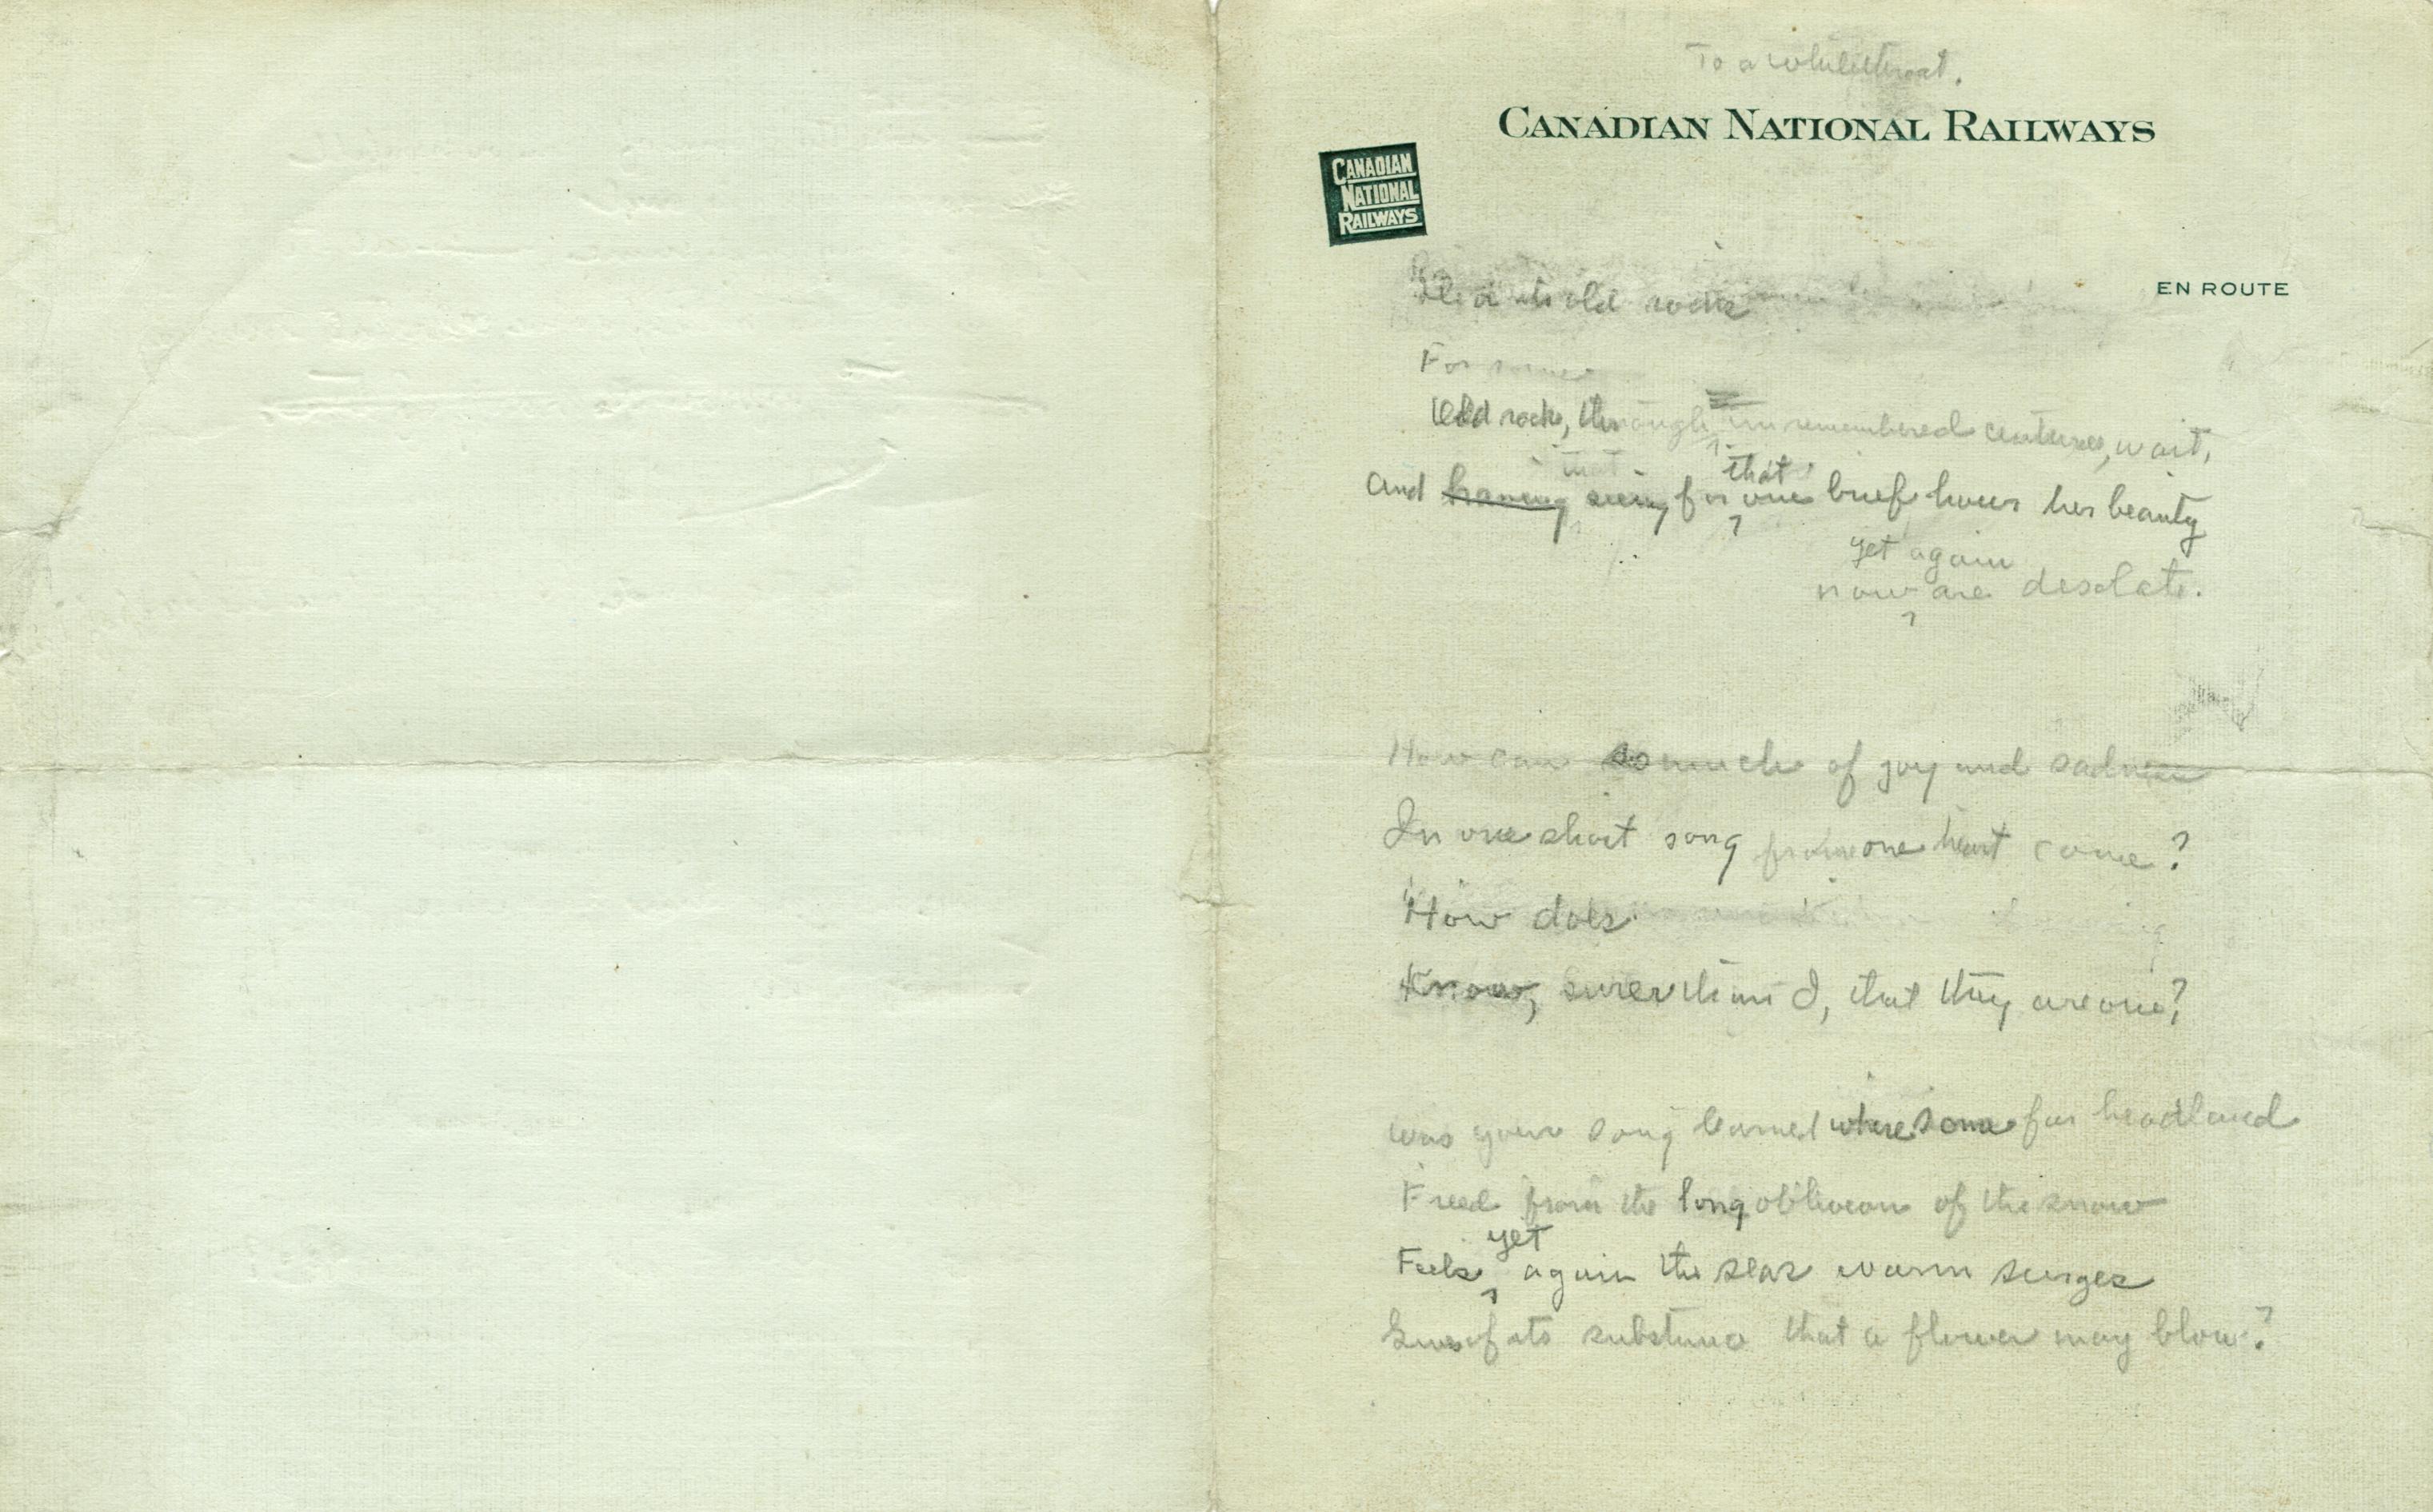 To a whitethroat.
CANADIAN NATIONAL RAILWAYS
CANADIAN
NATIONAL
RAILWAYS
EN ROUTE
old rocks
For some
Old rock, through unremembered centuries, wait,
that
And having seen, for one brief hour her beauty
yet again
now are desolate.
How can so much of joy and sadness
In one short song from one heart come?
How does
Know, surer than I, that they are one?
Was your song learned where some far headland
Freed from the long oblivion of the snow
yet
Feels again the seas warm surges
Gives of its substance that a flower may blow?